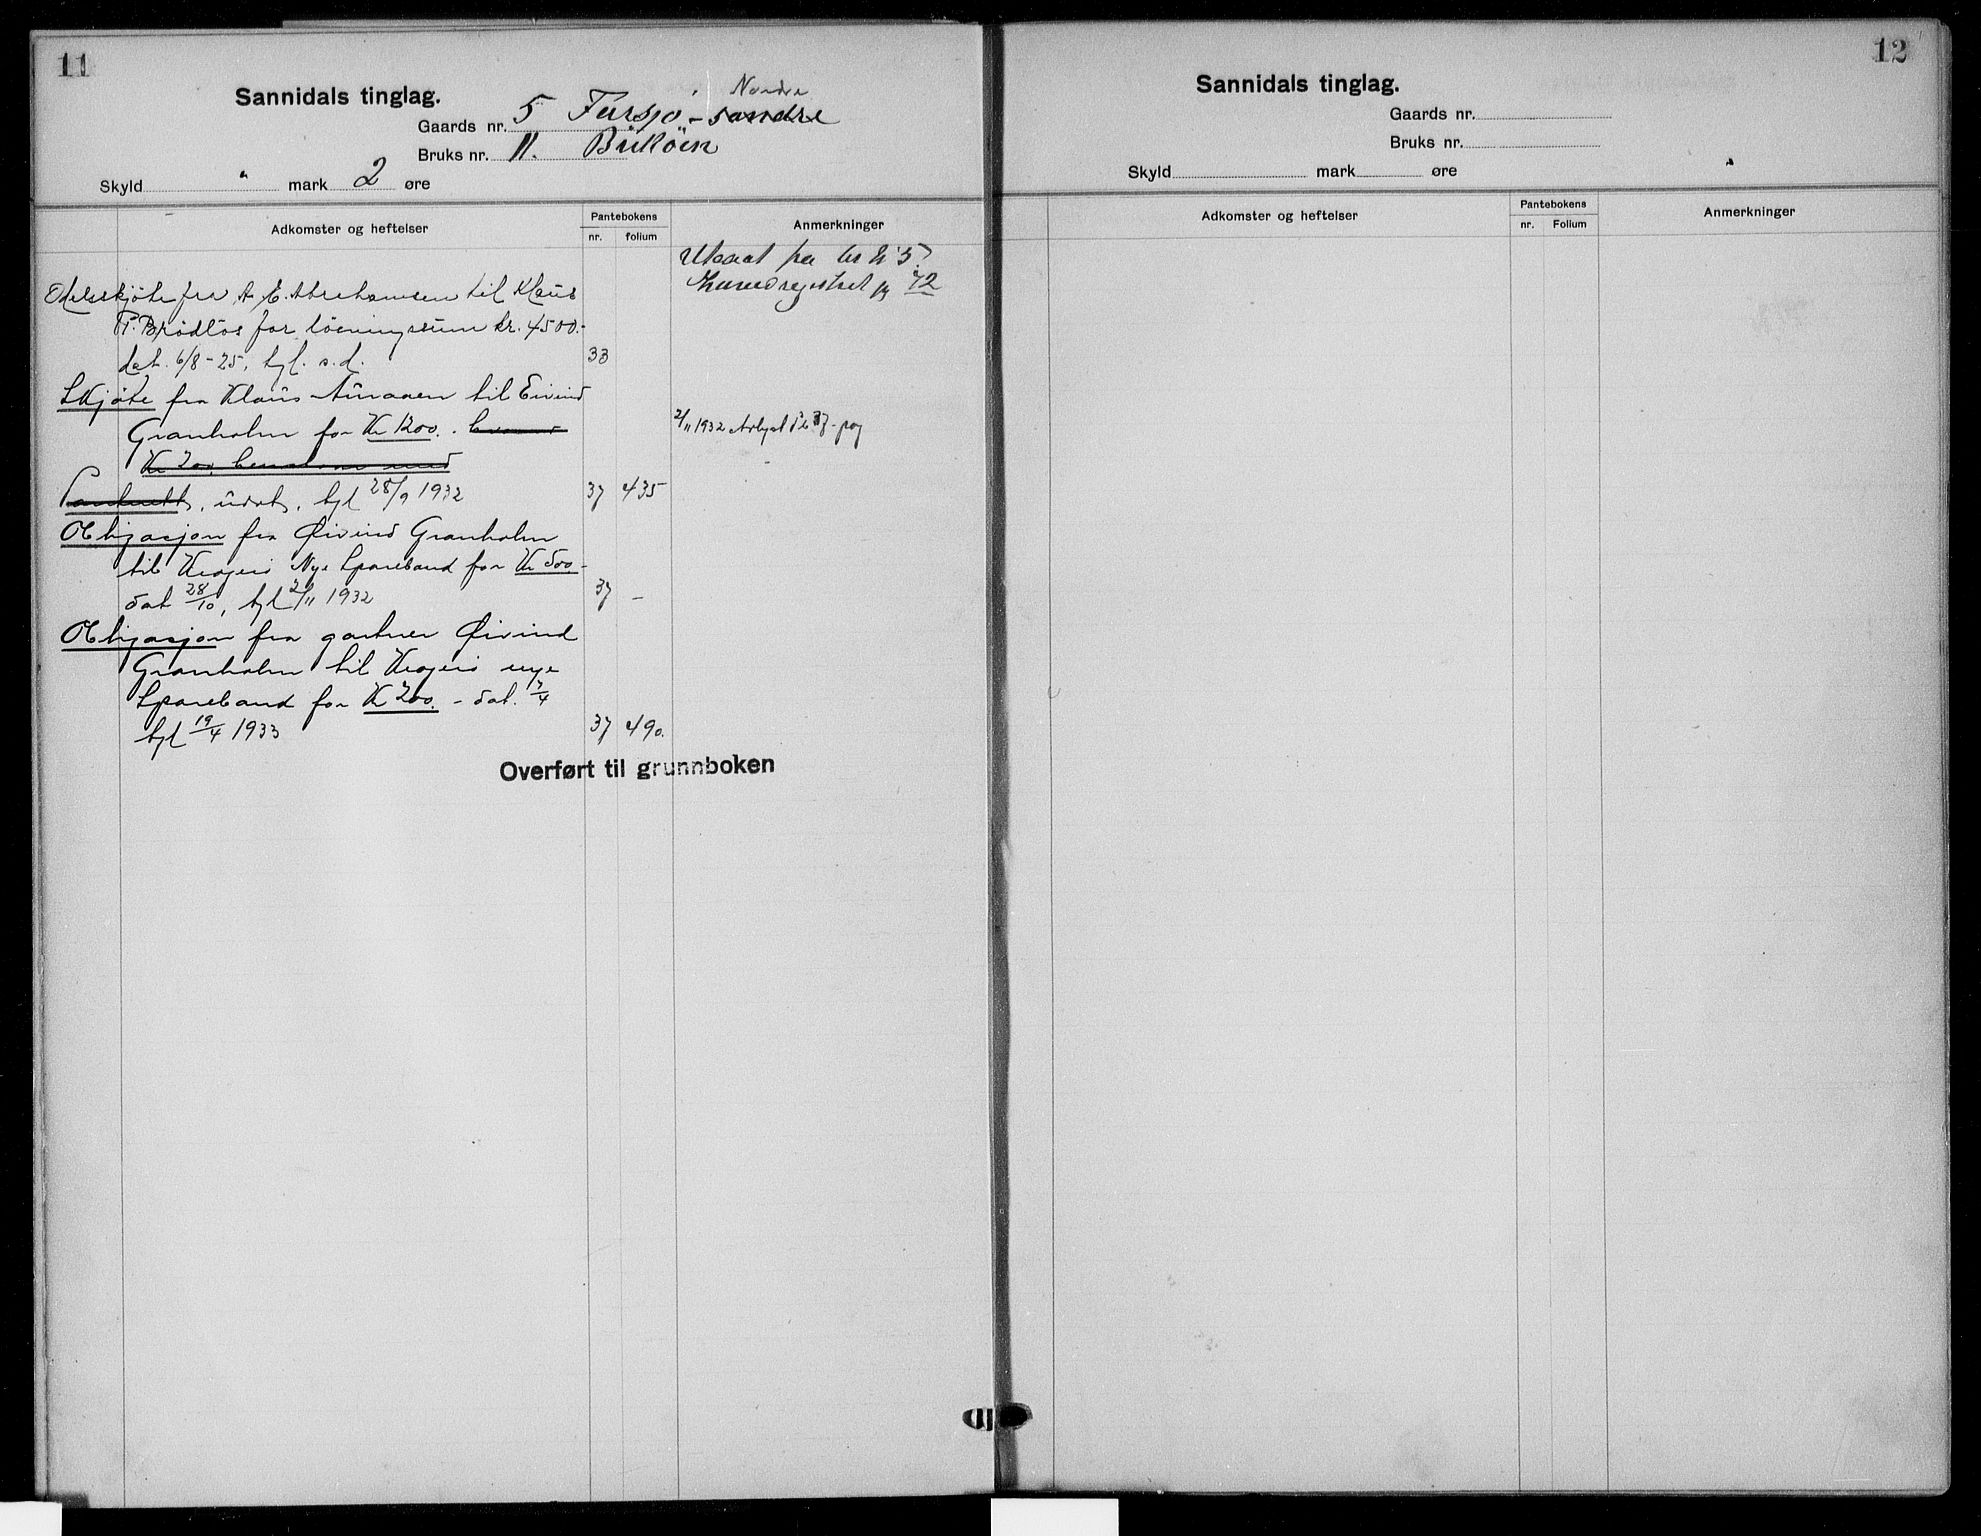 11
Sannidals tinglag.
Nordre
Gaards nr. 5 Fursjö - søndre
Bruks nr. 11. Birköen
Skyld " mark 2 øre
Adkomster og heftelser
Pantebokens
nr. folium
Anmerkninger
Utskilt fra br № 5.
72
Odelsskjöte fra A. E. Abrahamsen til Klaus
P. Brödlös for löseningssum kr. 4500.-
dat. 6/8-25, tgl. s.d. 33
Skjöte fra Klaus til Eivind
Granholm for Kr 1200.
Kr 200.
2/11 1932 Avlyst
Panterett, udat, tgl 28/9 1932 37 435
Obligasjon fra Øivind Granholm
til Kragerö Nye Sparebank for Kr 500-
dat 28/10, tgl 2/11 1932 37 -
Obligasjon fra gartner Øivind
Granholm til Kragerö nye
Sparebank for Kr 200. - dat. 7/4
tgl 19/4 1933 37 490.
Overført til grunnboken
12
Sannidals tinglag.
Gaards nr.
Bruks nr.
Skyld mark øre
Adkomster og heftelser
Pantebokens
nr. Folium
Anmerkninger